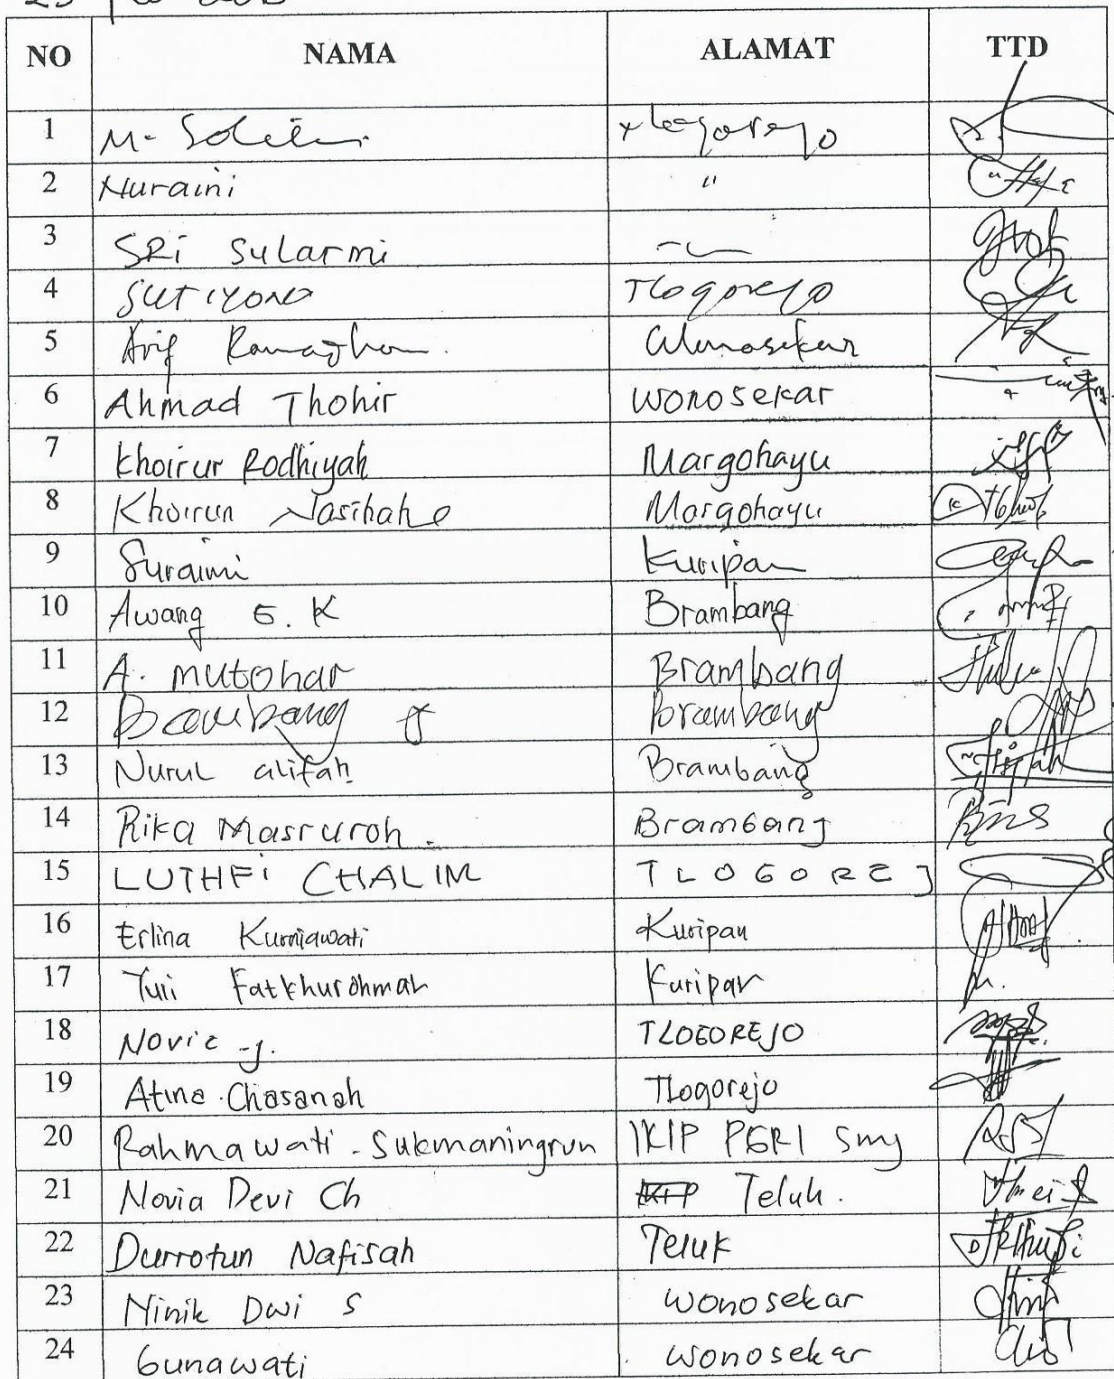 NO NAMA ALAMAT TTD
1 M. Tlogorejo
2 Nuraini "
3 SRi Sularmi
4 SUTIYONO Tlogorejo
5 Arif Wonosekar
6 Ahmad Thohir wonosekar
7 Khoirur Rodhiyah Margohayu
8 Khoirun Nasihah Margohayu
9 Suraimi Kuripan
10 Awang G. K Brambang
11 A. mutohar Brambang
12 Bambang Brambang
13 Nurul alifah Brambang
14 Rika Masruroh. Brambang
15 LUTHFi CHALIM TLOGOREJ
16 Erlina Kurniawati Kuripan
17 Yuli Fatkhurohmah Kuripan
18 Novie .j. TLOGOREJO
19 Atina Chasanah Tlogorejo
20 Rahmawati . Sukmaningrum IKIP PGRI Smg
21 Novia Devi Ch Teluk .
22 Durrotun Nafisah Teluk
23 Ninik Dwi S wonosekar
24 Gunawati wonosekar